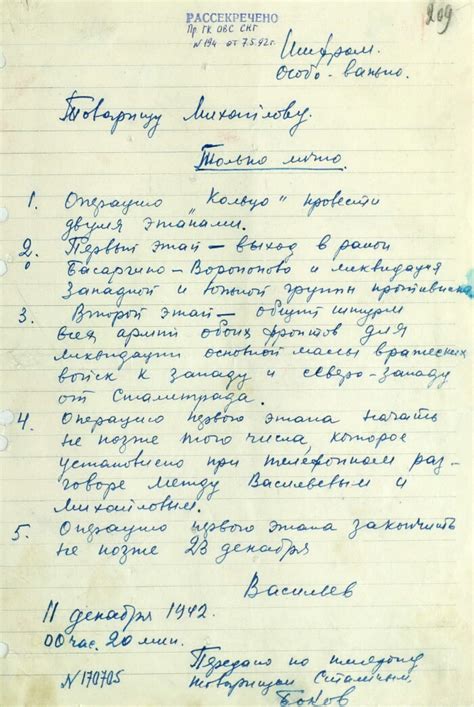 209
РАССЕКРЕЧЕНО
Пр ГК ОВС СНГ
№ 194 от 7.5.92г.
Шифром.
Особо-важно.
Товарищу Михайлову.
Только лично.
1. Операцию "Кольцо" провести
двумя этапами.
2. Первый этап – выход в район
Басаргино – Воропоново и ликвидация
Западной и южной группы противника
3. Второй этап – общий штурм
всех армий обоих фронтов для
ликвидации основной массы вражеских
войск к западу и северо-западу
от Сталинграда.
4. Операцию первого этапа начать
не позже того числа, которое
установлено при телефонном раз-
говоре между Васильевым и
Михайловым.
5. Операцию первого этапа закончить
не позже 23 декабря
Васильев
11 декабря 1942
00 час. 20 мин.
Передано по телефону
№170705
товарищем Сталиным.
Боков